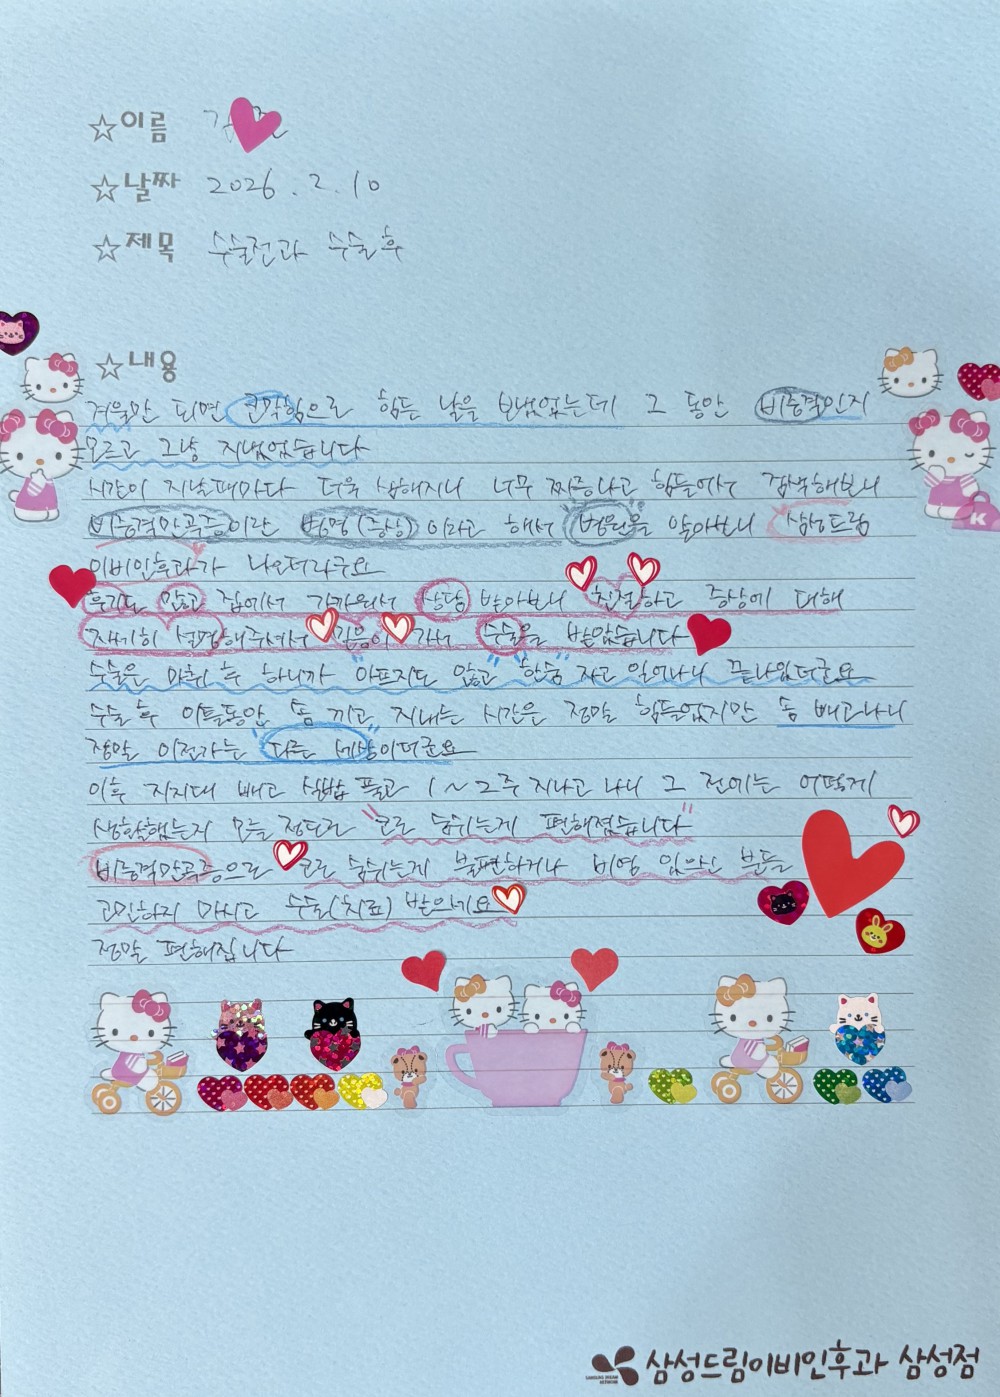 ☆이름 김
☆날짜 2026. 2. 10
☆제목 수술전과 수술후
☆내용
겨울만 되면 코막힘으로 힘든 날을 보냈었는데 그 동안 비중격인지
모르고 그냥 지냈었습니다
시간이 지날때마다 더욱 심해지니 너무 짜증나고 힘들어서 검색해보니
비중격만곡증이란 병명(증상)이라고 해서 "병원"을 알아보니 삼성드림
이비인후과가 나오더라구요
후기도 많고 집에서 가까워서 상담 받아보니 친절하고 증상에 대해
자세히 설명해주셔서 믿음이 가서 수술을 받았습니다
수술은 마취 후 하니까 "아프지도 않고" "한숨" 자고 일어나니 끝나있더군요
수술 후 이틀동안 솜 끼고 지내는 시간은 정말 힘들었지만 솜 빼고나니
정말 이전과는 "다른 세상"이더군요
이후 지지대 빼고 실밥 풀고 1~2주 지나고 나니 그 전에는 어떻게
생활했는지 모를 정도로 "코로 숨쉬는게 편해졌습니다"
비중격만곡증으로 코로 숨쉬는게 불편하거나 비염 있으신 분들
고민하지 마시고 수술(치료) 받으세요
정말 편해집니다
K
SAMSUNG DREAM NETWORK
삼성드림이비인후과 삼성점